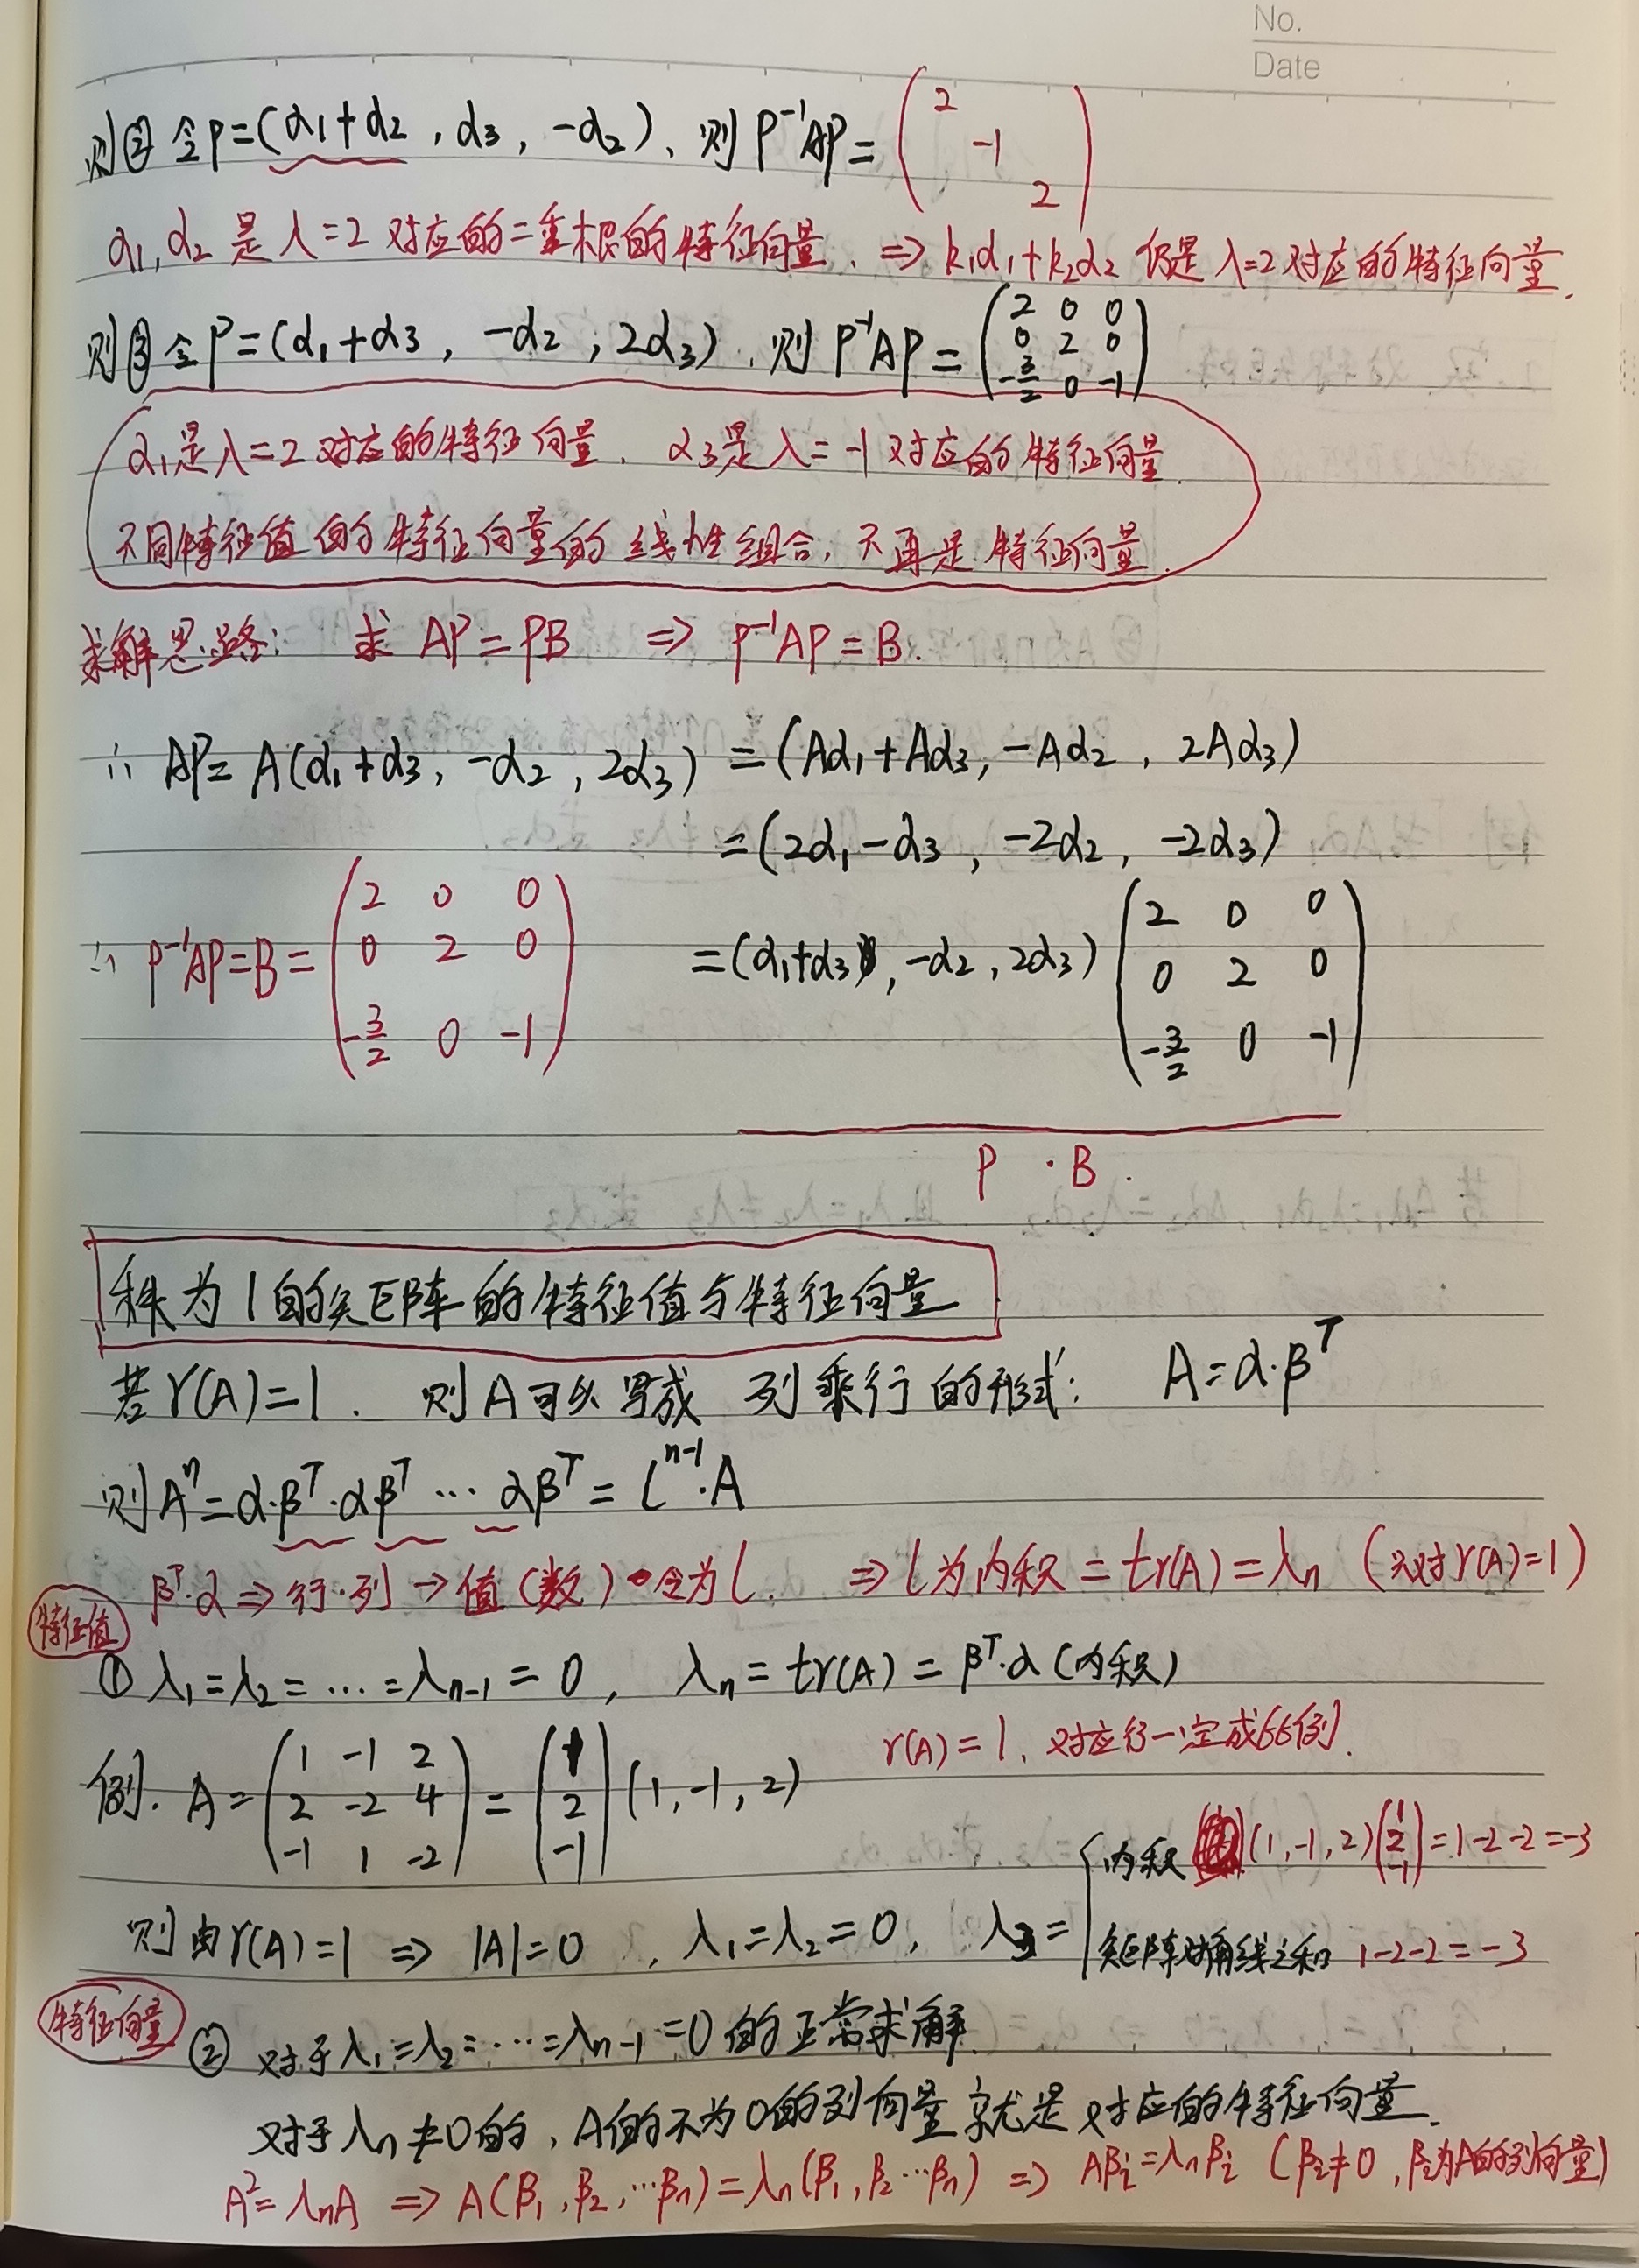 No.
Date
则② 令P=(α₁+α₂, α₃, -α₂), 则 P⁻¹AP= (2 -1 2)
α₁,α₂ 是 λ=2 对应的二重根的特征向量. ⇒ k₁α₁+k₂α₂ 仍是 λ=2对应的特征向量.
则③ 令P=(α₁+α₃, -α₂, 2α₃), 则 P⁻¹AP= (2 0 0; 0 2 0; -3/2 0 -1)
α₁是λ=2对应的特征向量. α₃是λ=-1对应的特征向量.
不同特征值的特征向量的线性组合, 不再是特征向量.
求解思路: 求 AP=PB ⇒ P⁻¹AP=B.
∴ AP=A(α₁+α₃, -α₂, 2α₃) =(Aα₁+Aα₃, -Aα₂, 2Aα₃)
=(2α₁-α₃, -2α₂, -2α₃)
∴ P⁻¹AP=B= (2 0 0; 0 2 0; -3/2 0 -1) =(α₁+α₃, -α₂, 2α₃) (2 0 0; 0 2 0; -3/2 0 -1)
P · B.
秩为1的矩阵的特征值与特征向量
若r(A)=1. 则A可以写成 列乘行的形式: A=α·βᵀ
则Aⁿ=α·βᵀ·αβᵀ···αβᵀ= lⁿ⁻¹·A
βᵀ·α ⇒ 行·列 → 值(数) 令为 l. ⇒ l为内积 = tr(A)=λₙ (只对r(A)=1)
特征值
① λ₁=λ₂=…=λₙ₋₁=0, λₙ=tr(A)=βᵀ·α(内积)
r(A)=1, 对应行一定成比例.
例. A= (1 -1 2; 2 -2 4; -1 1 -2) = (1; 2; -1) (1,-1,2)
内积 (1,-1,2)(1; 2; -1)=1-2-2=-3
则由r(A)=1 ⇒ |A|=0, λ₁=λ₂=0, λ₃= 矩阵对角线之和 1-2-2=-3
特征向量
② 对于λ₁=λ₂=…=λₙ₋₁=0的正常求解.
对于λₙ≠0的, A的不为0的列向量就是对应的特征向量.
A²=λₙA ⇒ A(β₁,β₂,…βₙ)=λₙ(β₁,β₂…βₙ) ⇒ Aβᵢ=λₙβᵢ (βᵢ≠0, βᵢ为A的列向量)